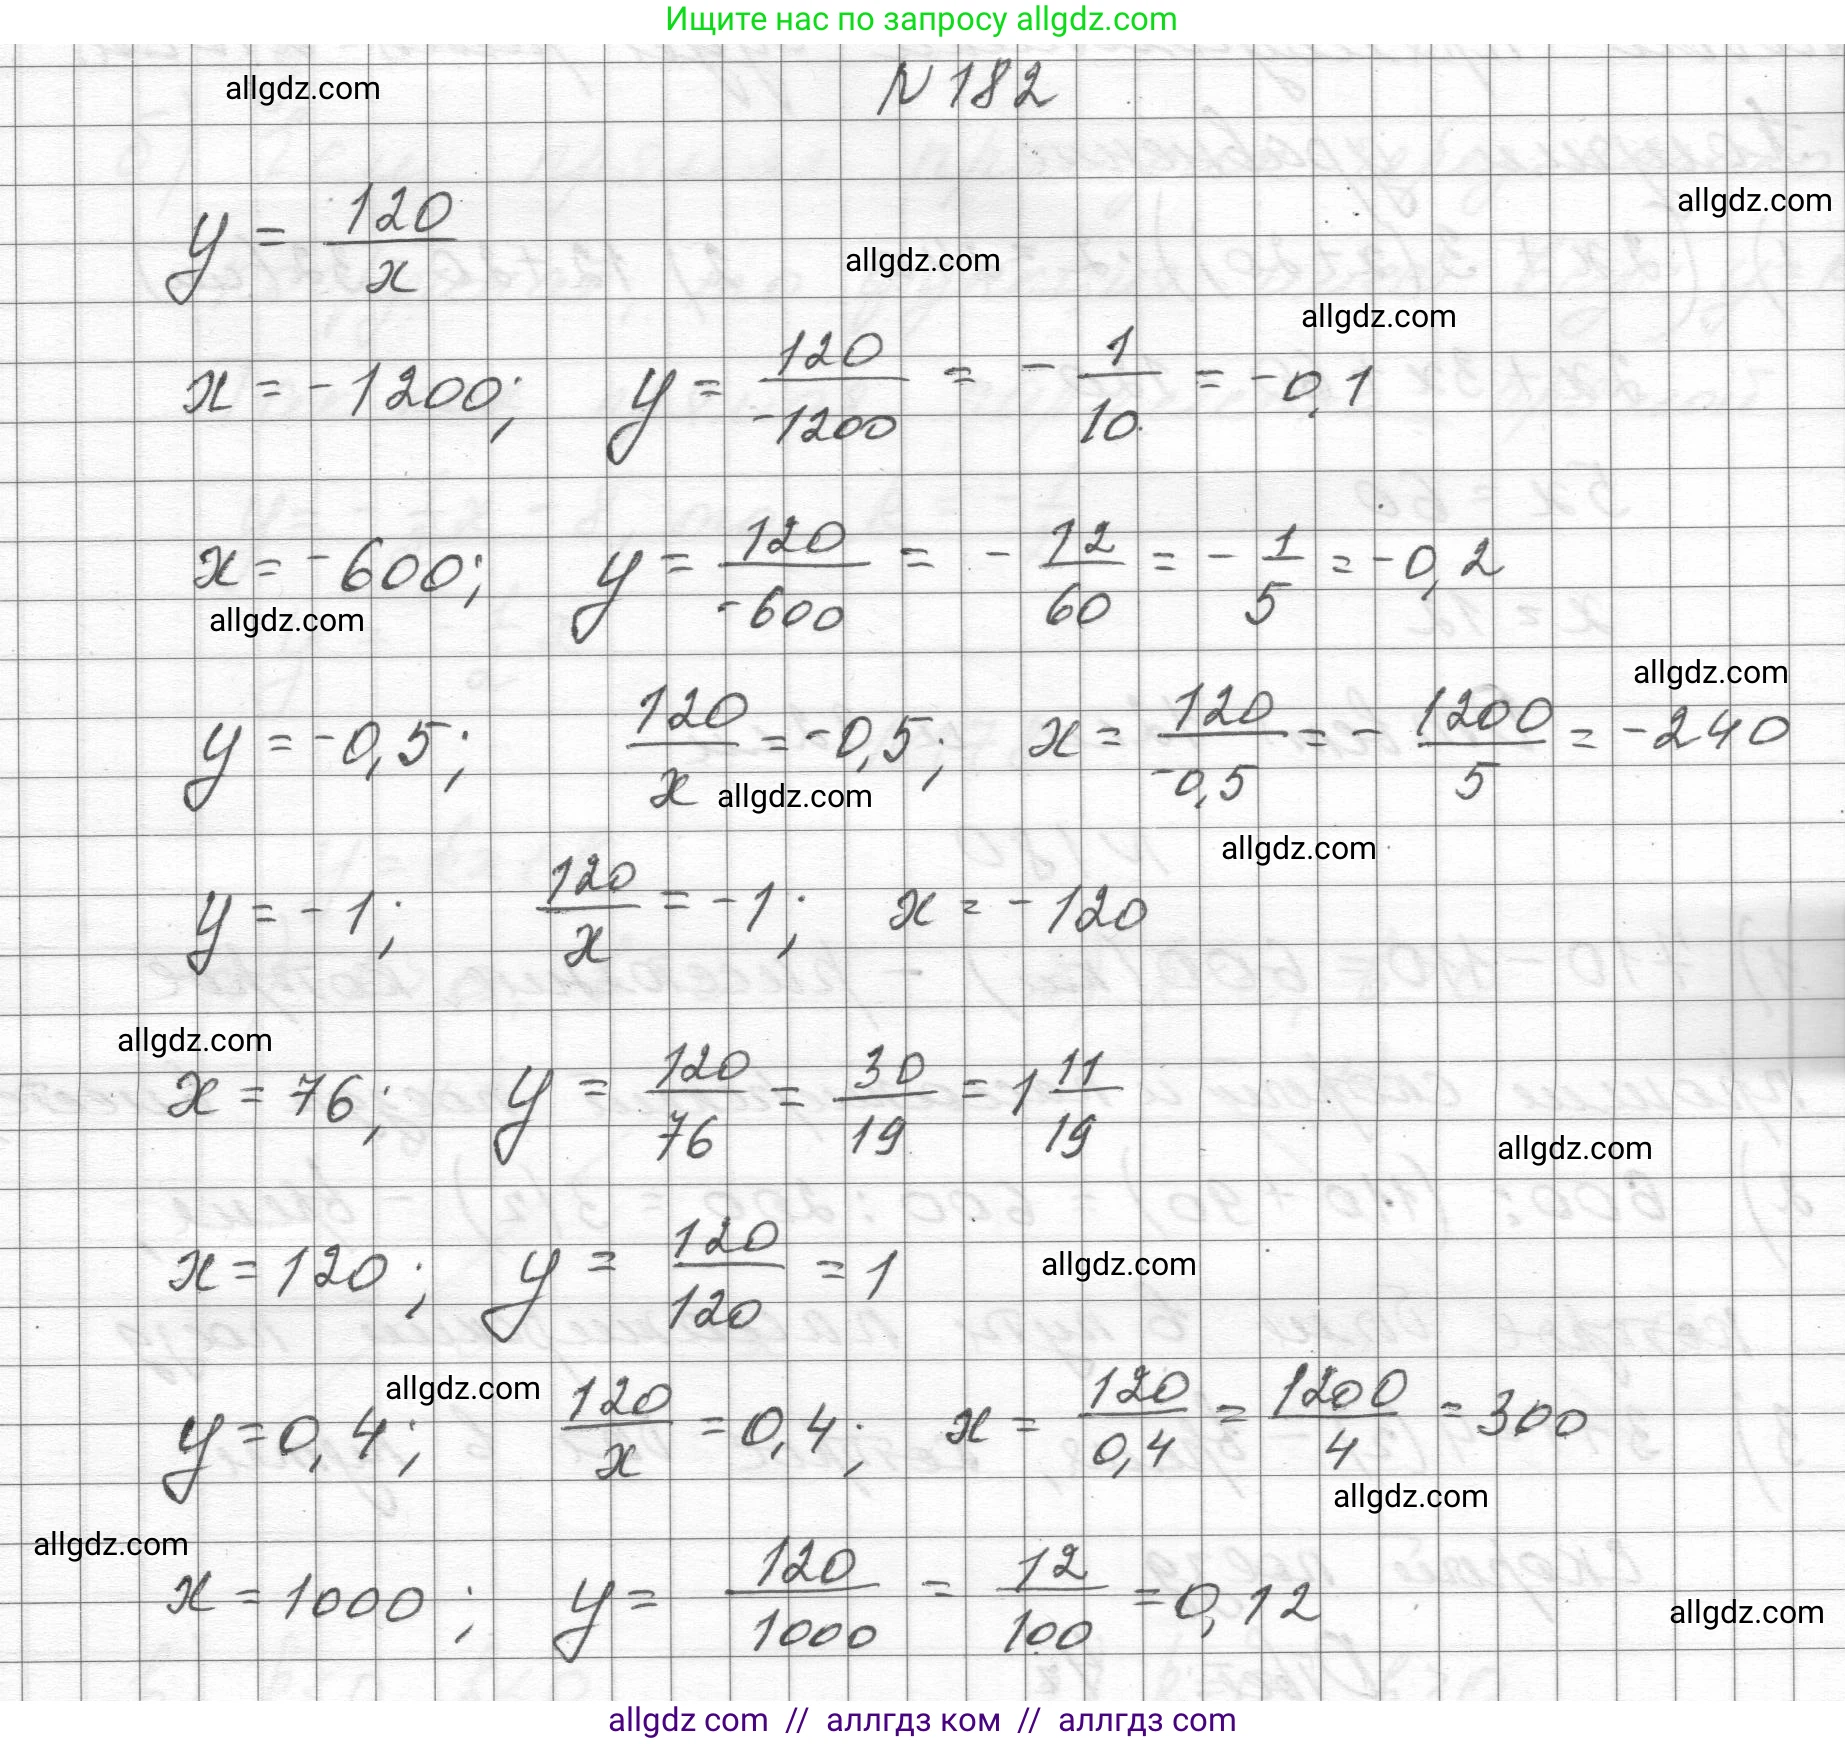 Ищите нас по запросу allgdz.com
allgdz.com
N 182
allgdz.com
y = 120/x
allgdz.com
allgdz.com
x = -1200; y = 120/-1200 = - 1/10 = -0,1
x = -600; y = 120/-600 = - 12/60 = - 1/5 = -0,2
allgdz.com
allgdz.com
y = -0,5; 120/x = -0,5; x = 120/-0,5 = - 1200/5 = -240
allgdz.com
allgdz.com
y = -1; 120/x = -1; x = -120
allgdz.com
x = 76; y = 120/76 = 30/19 = 1 11/19
allgdz.com
x = 120; y = 120/120 = 1
allgdz.com
allgdz.com
y = 0,4; 120/x = 0,4; x = 120/0,4 = 1200/4 = 300
allgdz.com
allgdz.com
x = 1000; y = 120/1000 = 12/100 = 0,12
allgdz.com
allgdz com // аллгдз ком // аллгдз com